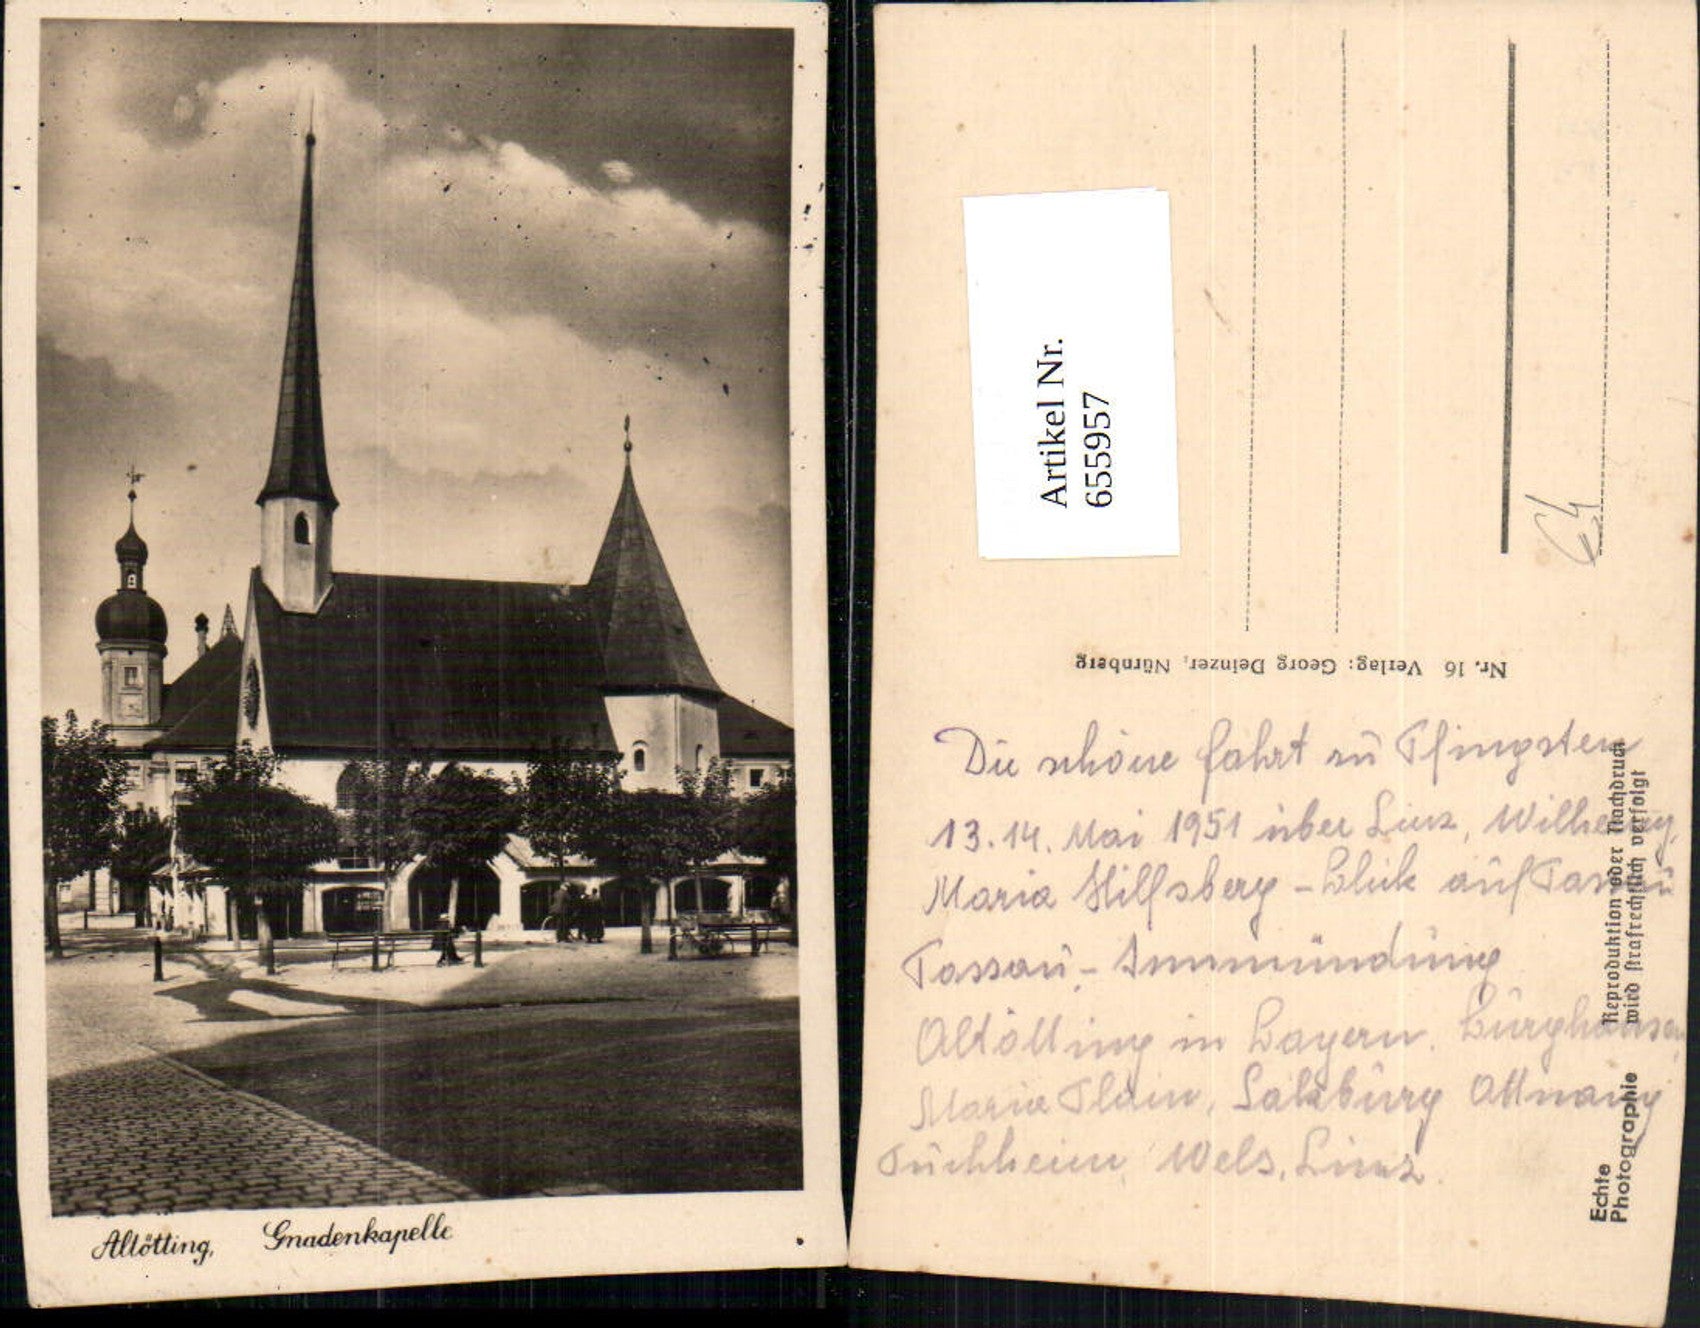 Altötting, Gnadenkapelle
Artikel Nr.
655957
Nr. 16 Verlag: Georg Deinzer, Nürnberg
Die schöne Fahrt zu Pfingsten
13. 14. Mai 1951 über Linz, Wilhering,
Maria Hilfsberg - Blick auf Passau
Passau, - Innmündung
Altötting in Bayern. Burghausen
Maria Plain, Salzburg Attnang
Puchheim, Wels, Linz.
Reproduktion oder Nachdruck
wird strafrechtlich verfolgt
Echte
Photographie